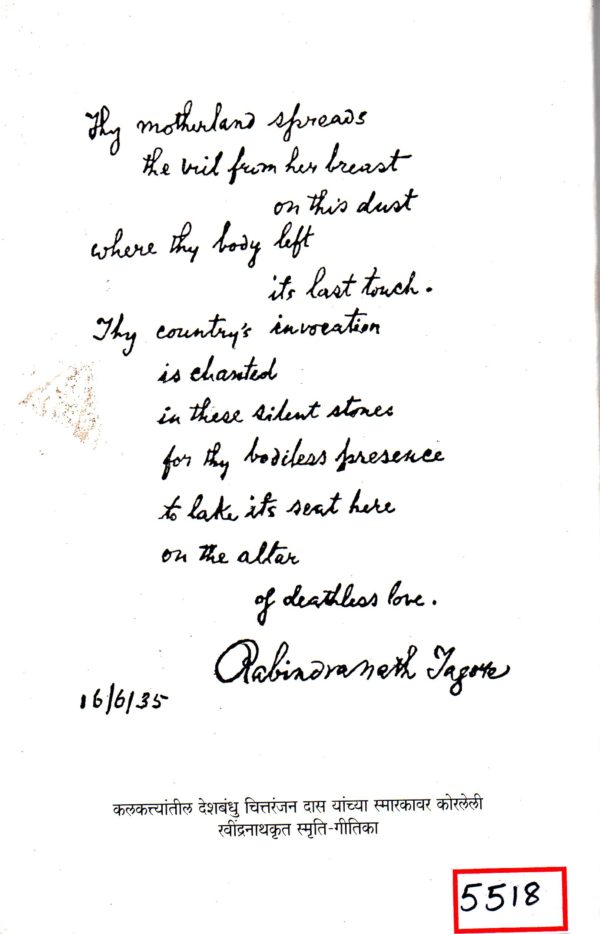 Thy motherland spreads
the veil from her breast
on this dust
where thy body left
its last touch.
Thy country's invocation
is chanted
in these silent stones
for thy bodiless presence
to take its seat here
on the altar
of deathless love.
Rabindranath Tagore
16/6/35
कलकत्त्यांतील देशबंधु चित्तरंजन दास यांच्या स्मारकावर कोरलेली
रवींद्रनाथकृत स्मृति-गीतिका
5518